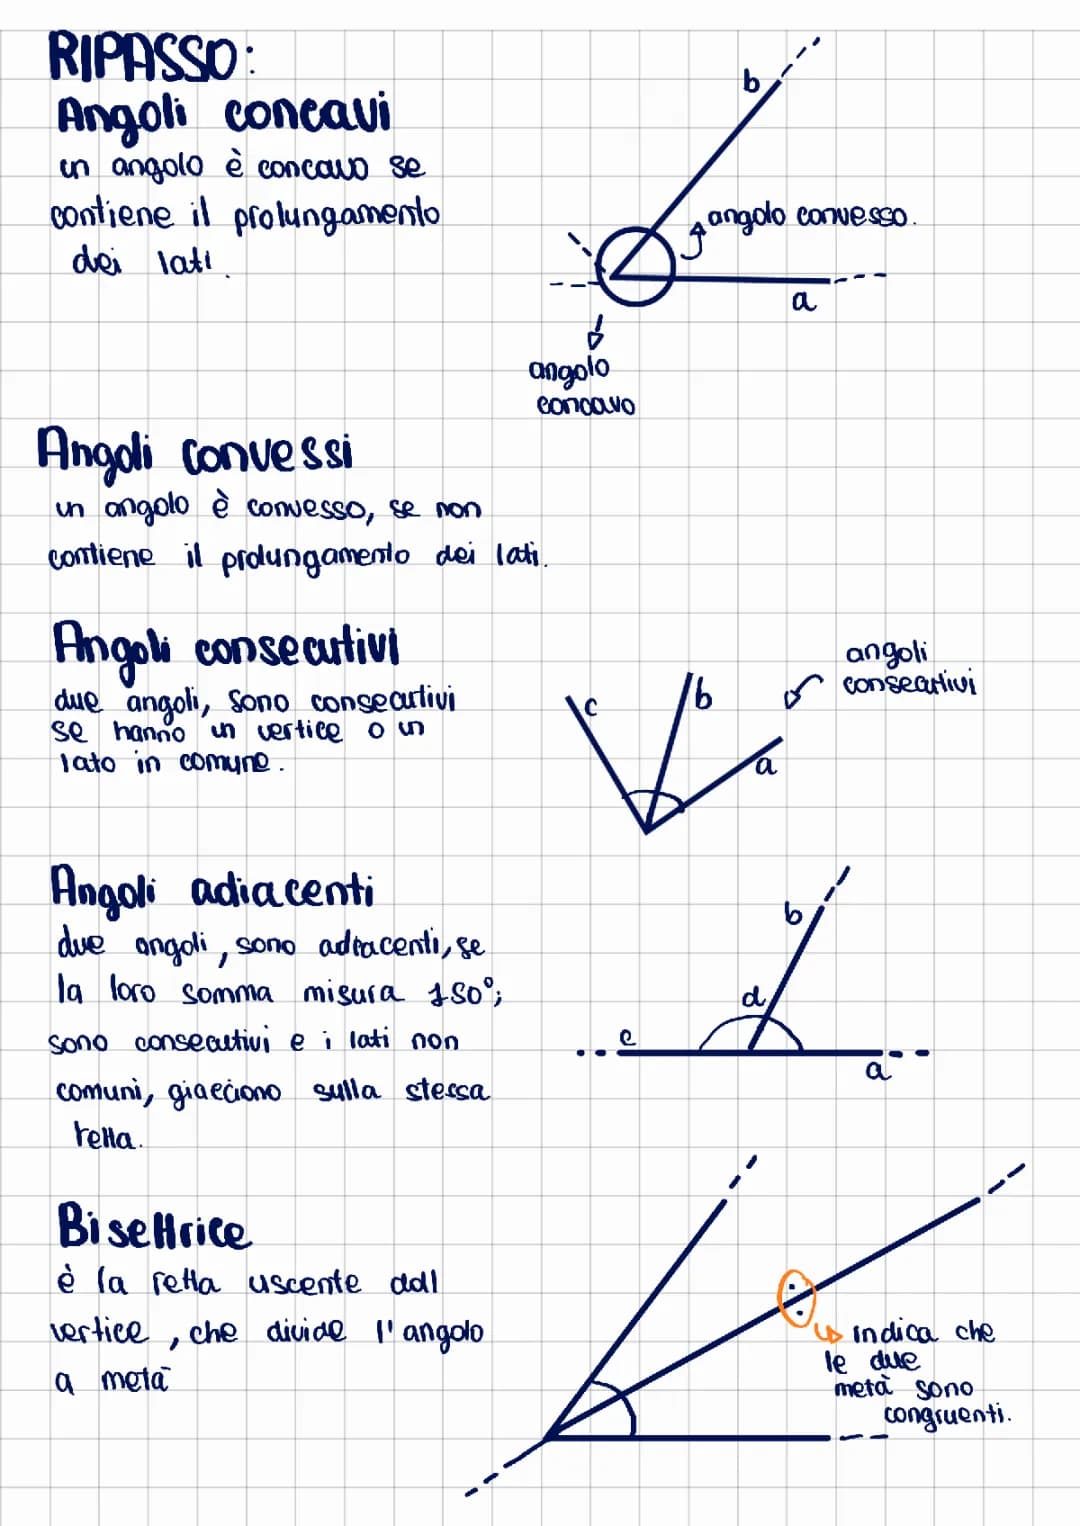 RIPASSO:
Angoli concavi
un angolo è concavo se
contiene il prolungamento
dei lati.
b
angolo convesso.
a
angolo
concavo
Angoli convessi
un angolo è convesso, se non
contiene il prolungamento dei lati.
Angoli consecutivi
due angoli, sono consecutivi
se hanno un vertice o un
lato in comune.
c
b
a
angoli
consecutivi
Angoli adiacenti
due angoli, sono adiacenti, se
la loro somma misura 180°;
sono consecutivi e i lati non
comuni, giacciono sulla stessa
retta.
b
d
c
a
Bisettrice
è la retta uscente dall
vertice, che divide l'angolo
a metà
indica che
le due
metà sono
congruenti.